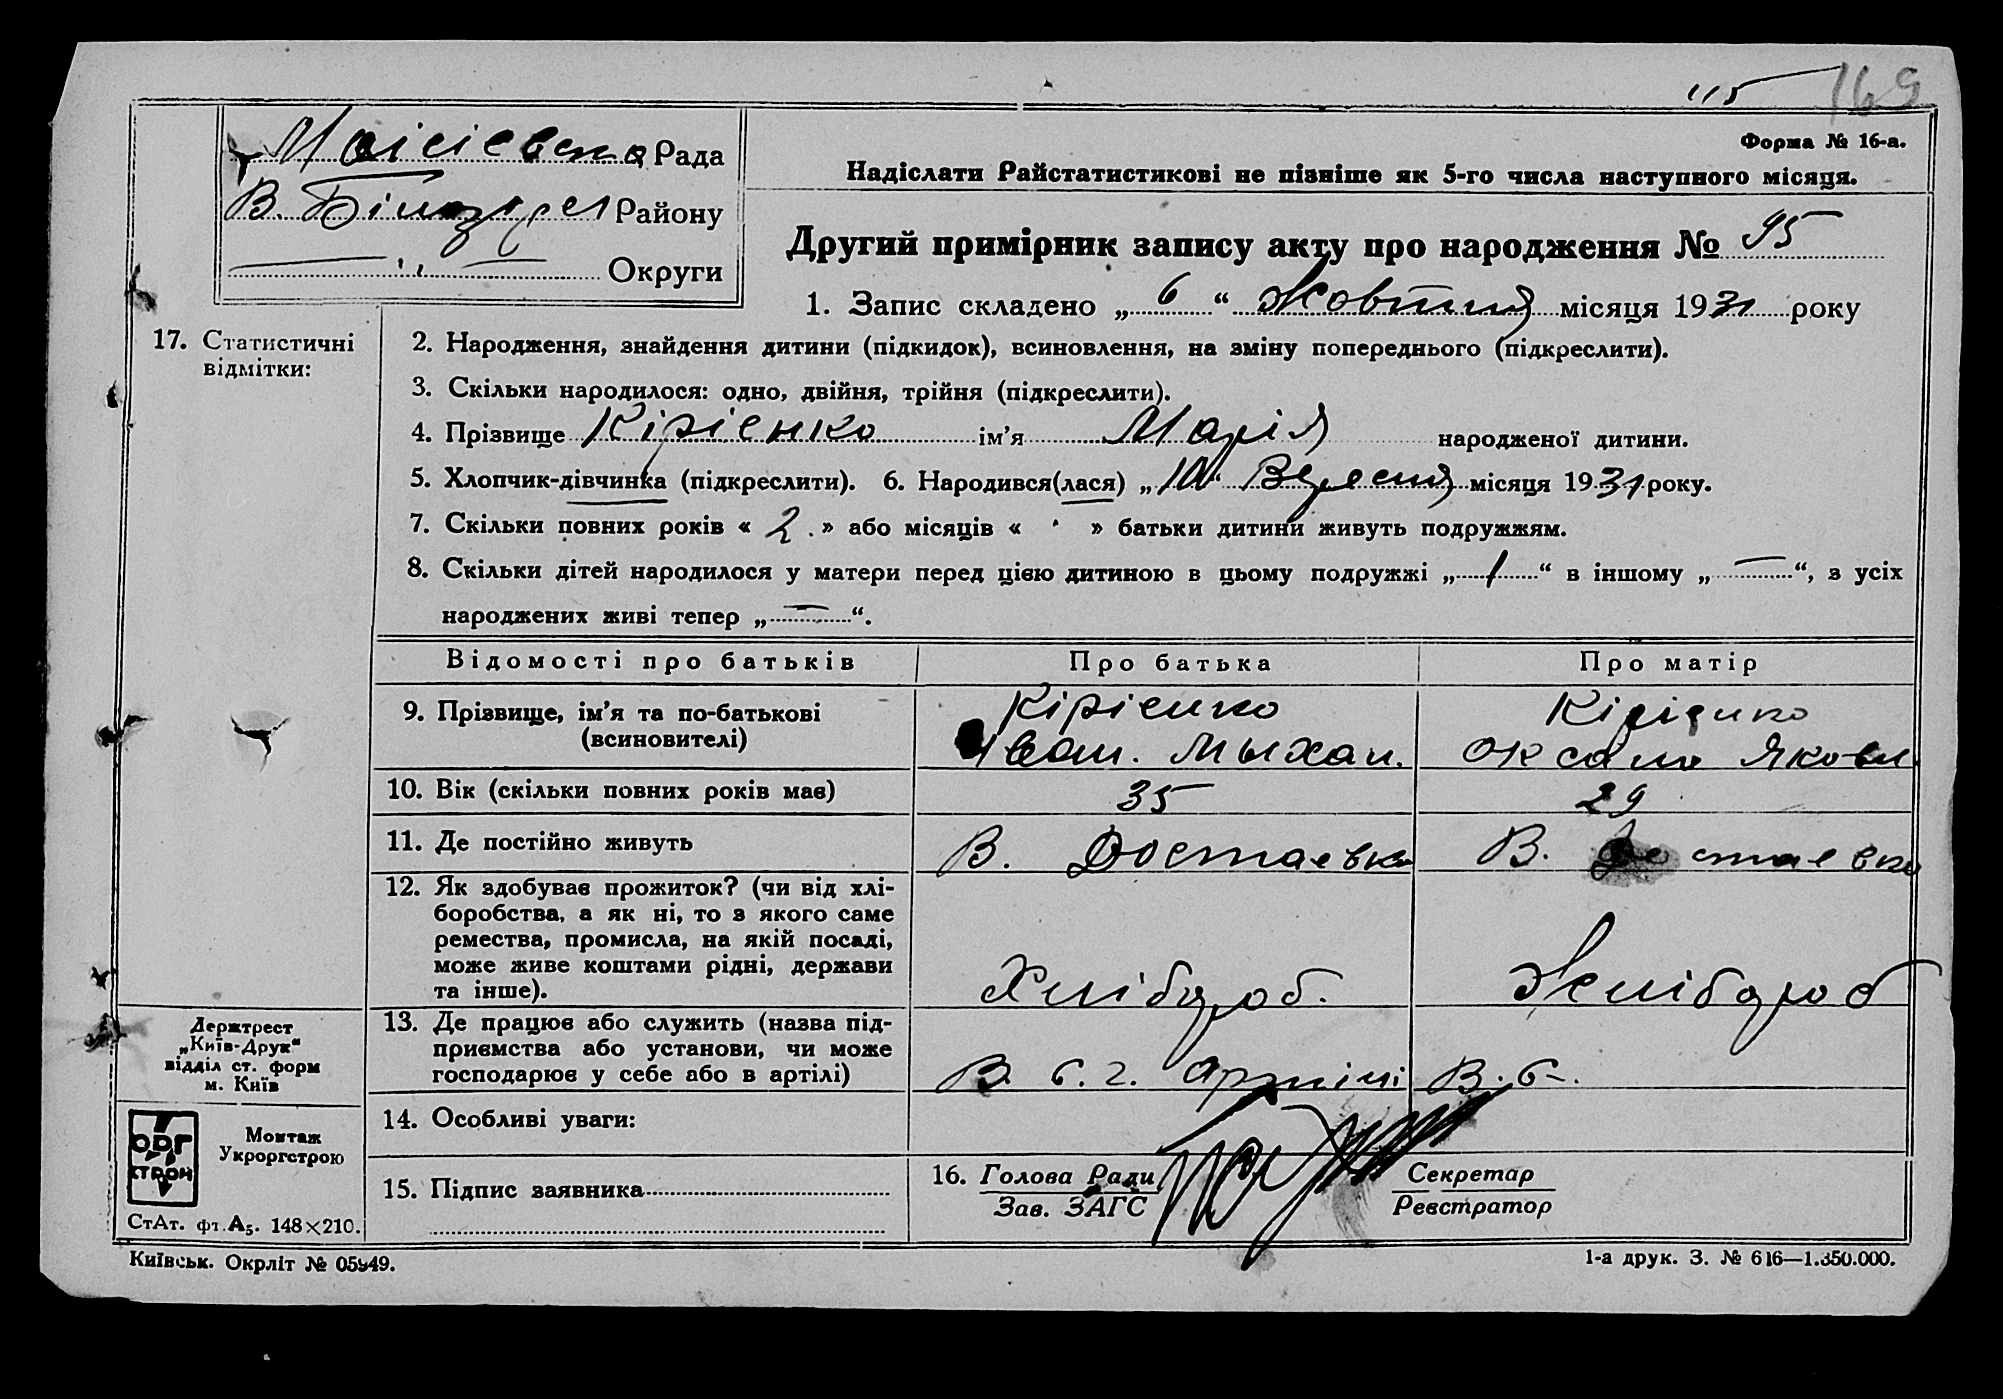 115 169
Моісієвска Рада
В. Білозерс Району
Округи
Форма № 16-а.
Надіслати Райстатистикові не пізніше як 5-го числа наступного місяця.
Другий примірник запису акту про народження № 95
1. Запис складено „ 6 “ Жовтня місяця 1931 року
17. Статистичні
відмітки:
2. Народження, знайдення дитини (підкидок), всиновлення, на зміну попереднього (підкреслити).
3. Скільки народилося: одно, двійня, трійня (підкреслити).
4. Прізвище Кірієнко ім’я Марія народженої дитини.
5. Хлопчик-дівчинка (підкреслити). 6. Народився(лася) „ “ Вересня місяця 1931 року.
7. Скільки повних років « 2 » або місяців « » батьки дитини живуть подружжям.
8. Скільки дітей народилося у матери перед цією дитиною в цьому подружжі „ 1 “ в іншому „ — “, з усіх
народжених живі тепер „ — “.
Відомості про батьків Про батька Про матір
9. Прізвище, ім’я та по-батькові
(всиновителі)
Кірієнко
Іван. Мыхай.
Кірієнко
Оксана Яковл.
10. Вік (скільки повних років має) 35 29
11. Де постійно живуть В. Достаєвка В. Достаєвка
12. Як здобуває прожиток? (чи від хлі-
боробства, а як ні, то з якого саме
ремества, промисла, на якій посаді,
може живе коштами рідні, держави
та інше).
Хлібороб. Хлібороб
13. Де працює або служить (назва під-
приємства або установи, чи може
господарює у себе або в артілі)
В. б. г. артілі В. б.
14. Особливі уваги:
15. Підпис заявника
16. Голова Ради
Зав. ЗАГС
Секретар
Реєстратор
Держтрест
„Київ-Друк“
відділ ст. форм
м. Київ
ОРГ
СТРОЙ
Монтаж
Укроргстрою
СтАт. фт. А5. 148×210.
Київськ. Окрліт № 05949.
1-а друк. З. № 616—1.350.000.